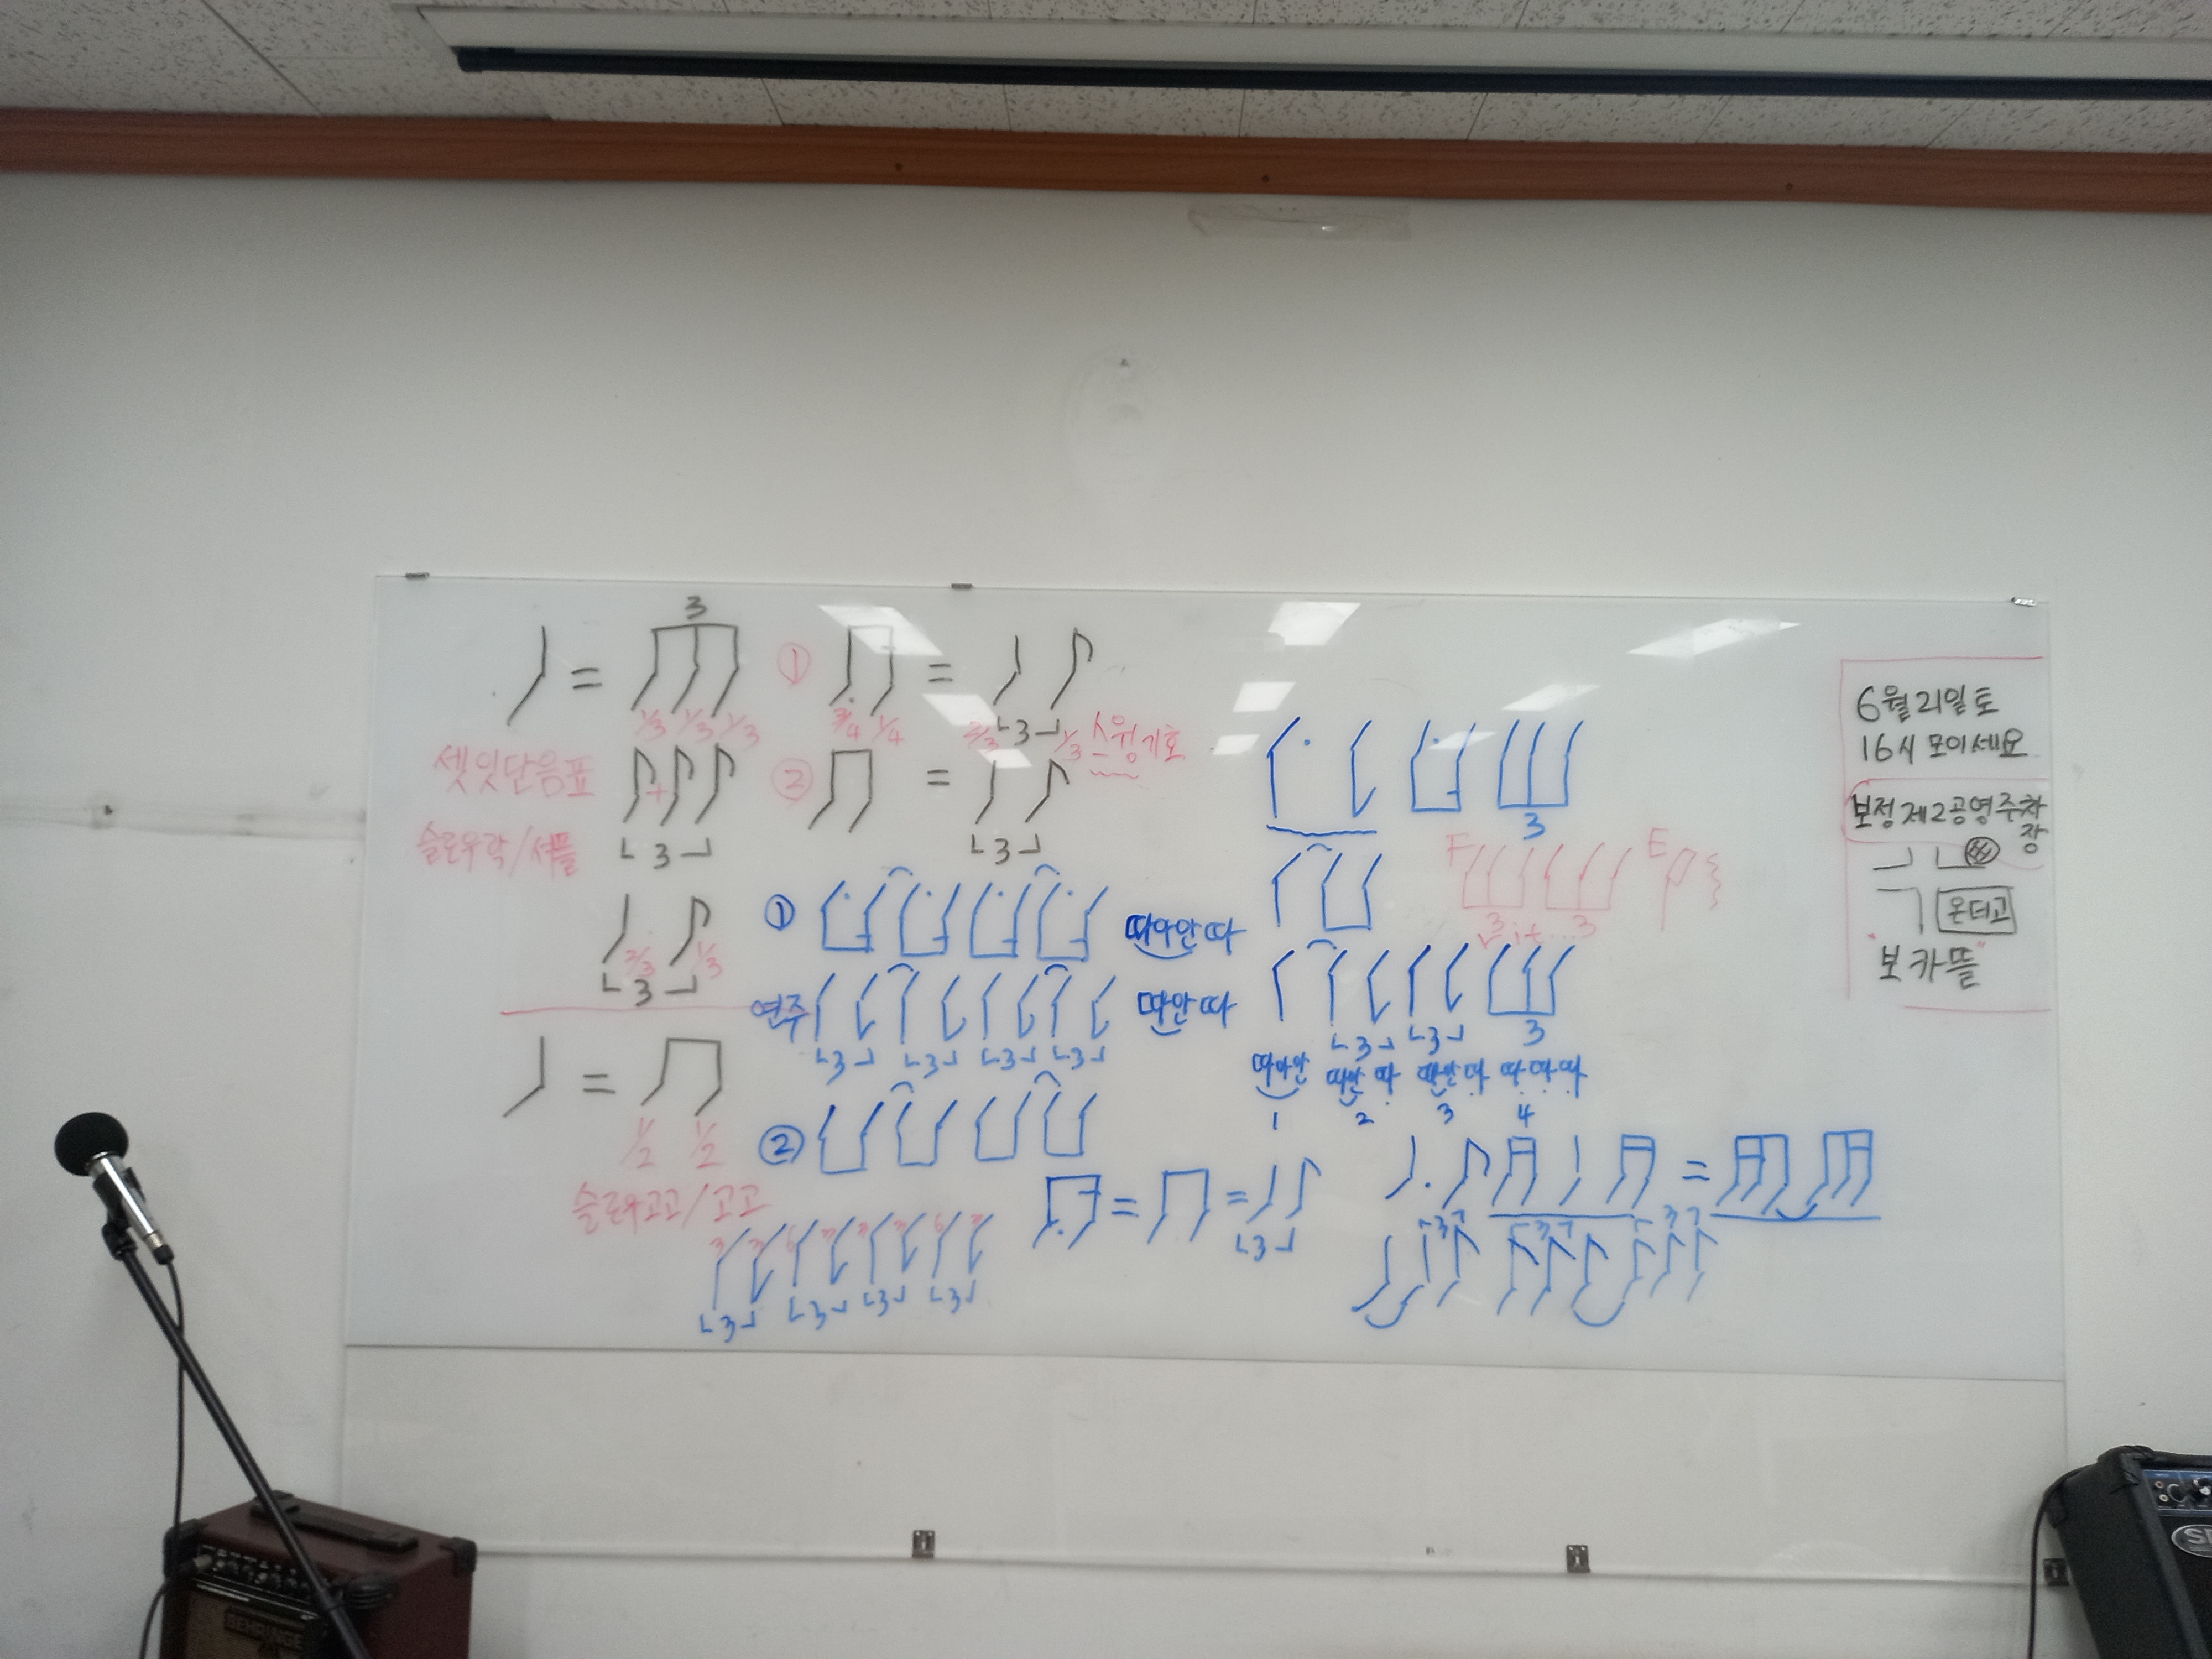 3
= ① = 
1/3 1/3 1/3 3/4 1/4 2/3 ㄴ3┘ 1/3 스윙기호
셋잇단음표 + ② =
슬로우락/셔플 ㄴ3┘ ㄴ3┘
2/3 1/3
ㄴ3┘
①  따아안따
연주  따안따
ㄴ3┘ ㄴ3┘ ㄴ3┘ ㄴ3┘
=
1/2 1/2
②
슬로우고고/고고
= =
ㄴ3┘
3 3 6 3 3 3 6 3
ㄴ3┘ ㄴ3┘ ㄴ3┘ ㄴ3┘
3
F E
3 3
ㄴ3┘ ㄴ3┘ 3
따아안 따안 따 따안 따 따 따 따
1 2 3 4
=
3 3 3
6월21일토
16시 모이세요
보정제2공영주차장
온더고
"보카뜰"
BEHRINGER